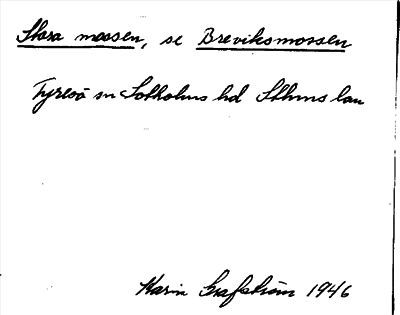 Stora mossen, se Breviksmossen
Tyresö sn Sotholms hd Sthms län
Karin Grafström 1946